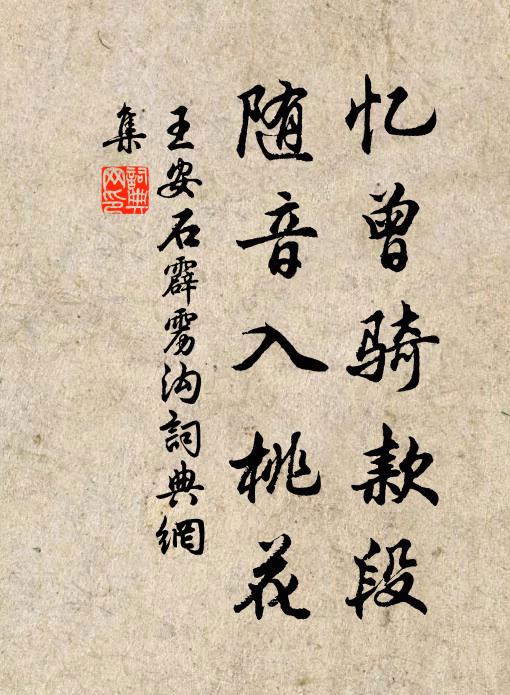 忆曾骑款段
随音入桃花
王安石霹雳沟词典網
集
詞典
网印